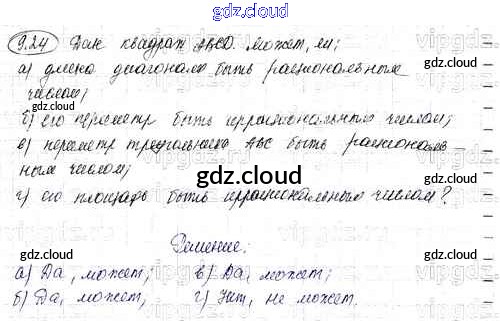 gdz.cloud
9.24 Дан квадрат ABCD. может, ли;
а) длина диагонали быть рациональным
числом;
б) его периметр быть иррациональным числом;
в) периметр треугольника ABC быть рациональ-
ным числом;
г) его площадь быть иррациональным числом?
gdz.cloud
Решение:
а) Да, может; в) Да, может;
б) Да, может, г) Нет, не может.
gdz.cloud